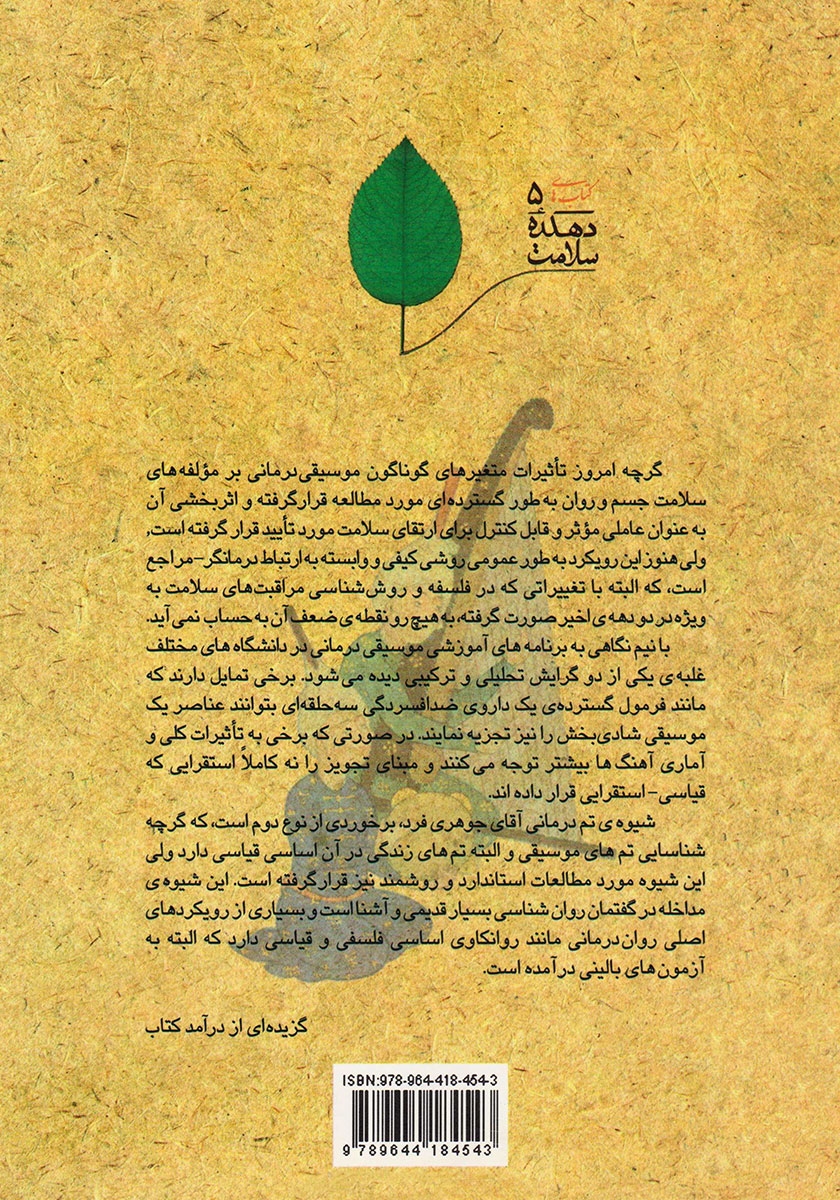 کتاب‌های ۵
دهکدهٔ
سلامت
گرچه امروز تأثیرات متغیرهای گوناگون موسیقی‌درمانی بر مؤلفه‌های
سلامت جسم و روان به‌طور گسترده‌ای مورد مطالعه قرارگرفته و اثربخشی آن
به عنوان عاملی مؤثر و قابل کنترل برای ارتقای سلامت مورد تأیید قرار گرفته است,
ولی هنوز این رویکرد به طور عمومی روشی کیفی و وابسته به ارتباط درمانگر–مراجع
است، که البته با تغییراتی که در فلسفه و روش‌شناسی مراقبت‌های سلامت به
ویژه در دو دهه‌ی اخیر صورت گرفته، به هیچ رو نقطه‌ی ضعف آن به حساب نمی‌آید.
با نیم نگاهی به برنامه های آموزشی موسیقی درمانی در دانشگاه های مختلف
غلبه‌ی یکی از دو گرایش تحلیلی و ترکیبی دیده می شود. برخی تمایل دارند که
مانند فرمول گسترده‌ی یک داروی ضدافسردگی سه‌حلقه‌ای بتوانند عناصر یک
موسیقی شادی‌بخش را نیز تجزیه نمایند. در صورتی که برخی به تأثیرات کلی و
آماری آهنگ ها بیشتر توجه می کنند و مبنای تجویز را نه کاملاً استقرایی که
قیاسی– استقرایی قرار داده اند.
شیوه ی تم درمانی آقای جوهری فرد، برخوردی از نوع دوم است، که گرچه
شناسایی تم های موسیقی و البته تم های زندگی در آن اساسی قیاسی دارد ولی
این شیوه مورد مطالعات استاندارد و روشمند نیز قرارگرفته است. این شیوه ی
مداخله در گفتمان روان شناسی بسیار قدیمی و آشنا است و بسیاری از رویکردهای
اصلی روان‌درمانی مانند روانکاوی اساسی فلسفی و قیاسی دارد که البته به
آزمون‌های بالینی درآمده است.
گزیده‌ای از درآمد کتاب
ISBN:978-964-418-454-3
9 789644 184543